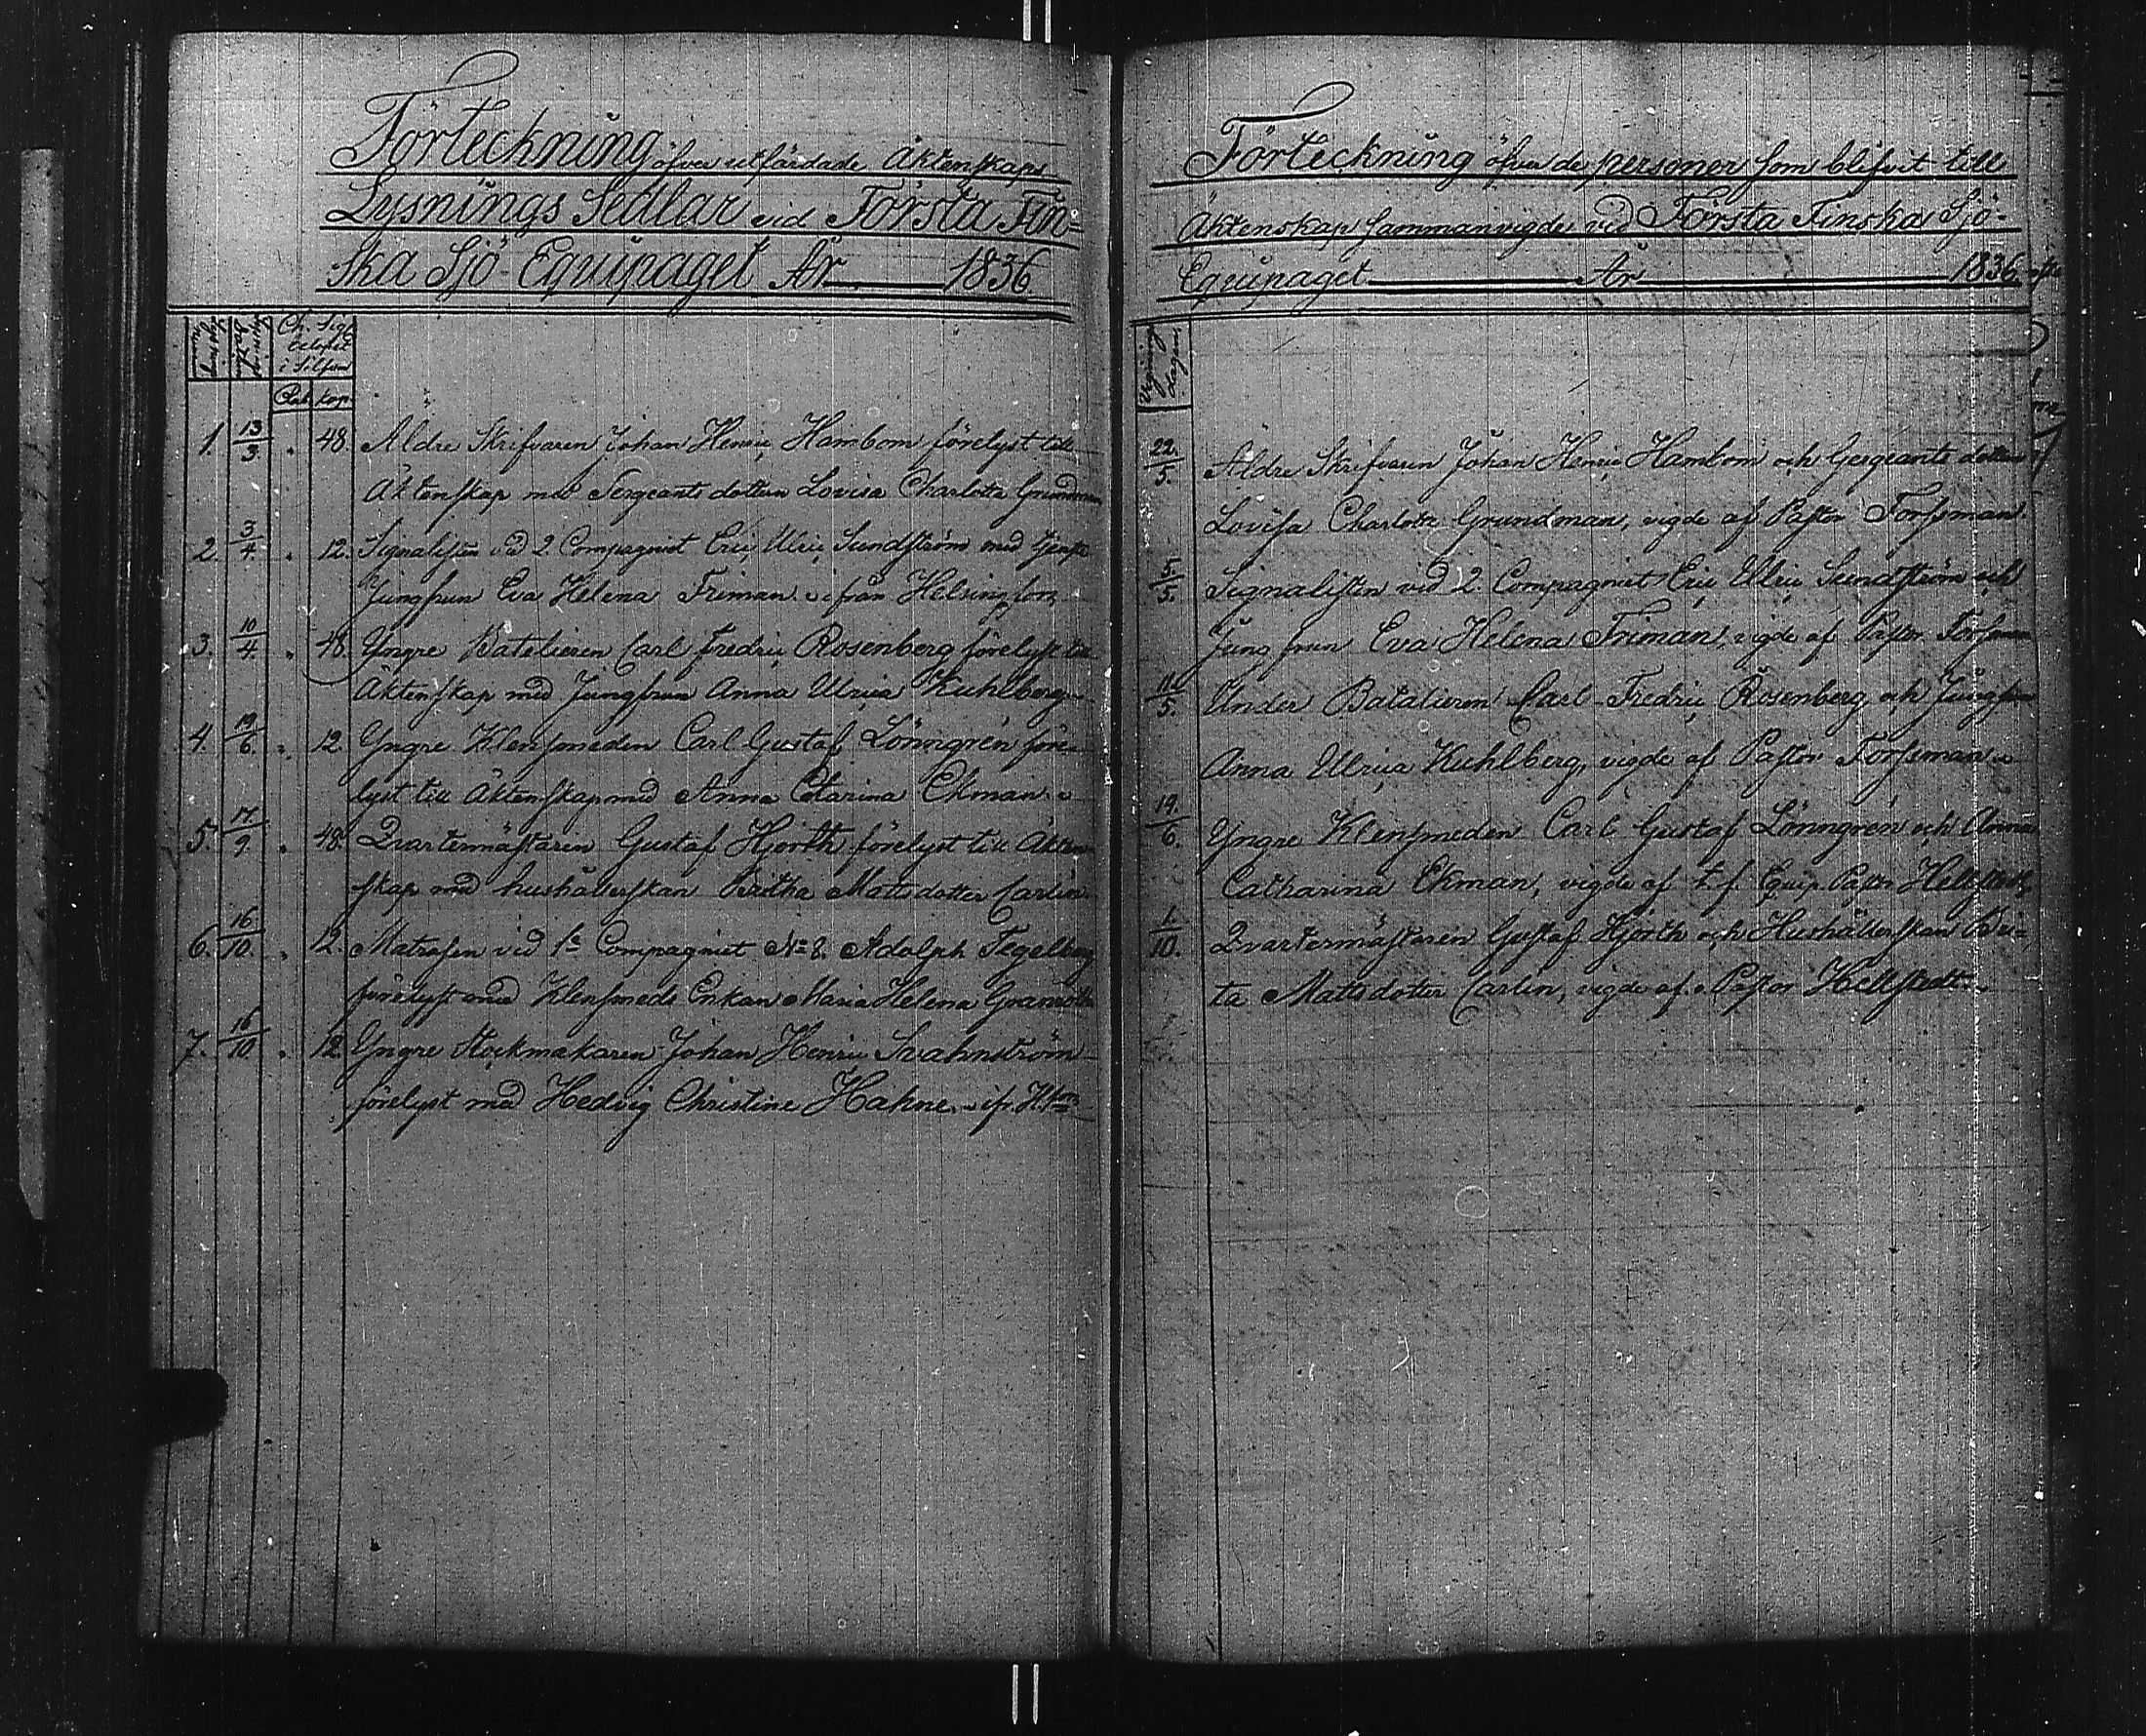 Förteckning öfver utfärdade Äktenskaps
Lysnings Sedlar vid Första Fin=
ska Sjö-Equipaget År 1836
Ch. Sigl.
i Silfver
Rub. kop.
1. 13/3 " 48. Äldre Skrifvaren Johan Henric Hambom förelyst till
Äktenskap med Sergeants dottern Lovisa Charlotta Grundman
2. 3/4 " 12. Signalisten vid 2 Compagniet Eric Ulric Sundström med
Jungfrun Eva Helena Friman ifrån Helsingfors
3. 10/4 " 48. Yngre Batelieren Carl Fredric Rosenberg förelyst till
Äktenskap med Jungfrun Anna Ulrica Kuhlberg
4. 19/6 " 12 Yngre Klensmeden Carl Gustaf Lönngrén före-
lyst till Äktenskap med Anna Catarina Ekman
5. 17/9 " 48. Qvartermästaren Gustaf Hjorth förelyst till Äkten
skap med hushållerskan Britha Matsdotter Carlin
6. 16/10. " 12. Matrosen vid 1a Compagniet No 8. Adolph Tegelberg
förelyst med Klensmeds Enkan Maria Helena
7. 16/10. " 12 Yngre Stockmakaren Johan Henric Svahnström
förelyst med Hedvig Christine Hahne ifr. H:fors
Förteckning öfver de personer som blifvit till
Äktenskap sammanvigde vid Första Finska Sjö-
Equipaget År 1836
Vignings
dagen
22./5. Äldre Skrifvaren Johan Henric Hambom och Sergeants dottern
Lovisa Charlotta Grundman, vigde af Pastor Forssman
5/5. Signalisten vid 2. Compagniet Eric Ullric Sundström och
Jungfrun Eva Helena Friman, vigde af Pastor Forssman
11/5. Under Batalieren Carl Fredric Rosenberg och Jungfrun
Anna Ulrica Kuhlberg, vigde af Pastor Forssman
19./6. Yngre Klensmeden Carl Gustaf Lönngrén och Anna
Catharina Ekman, vigde af t. f. Equip. Pastor Hellstedt
1./10. Qvartermästaren Gustaf Hjorth och Hushållerskan Bri=
ta Mattsdotter Carlin, vigde af Pastor Hellstedt